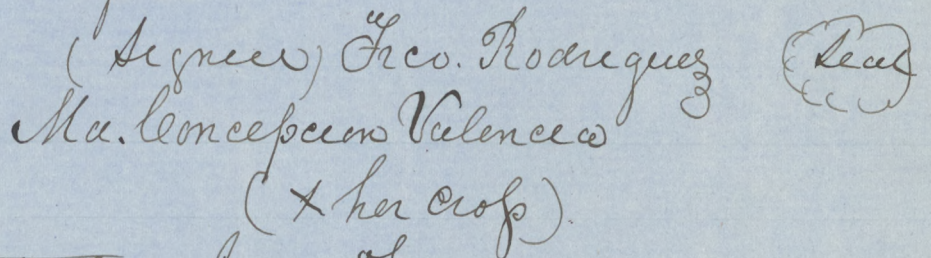 (Signed) Frco. Rodriguez (Seal)
Ma. Concepcion Valencia
(x her cross).